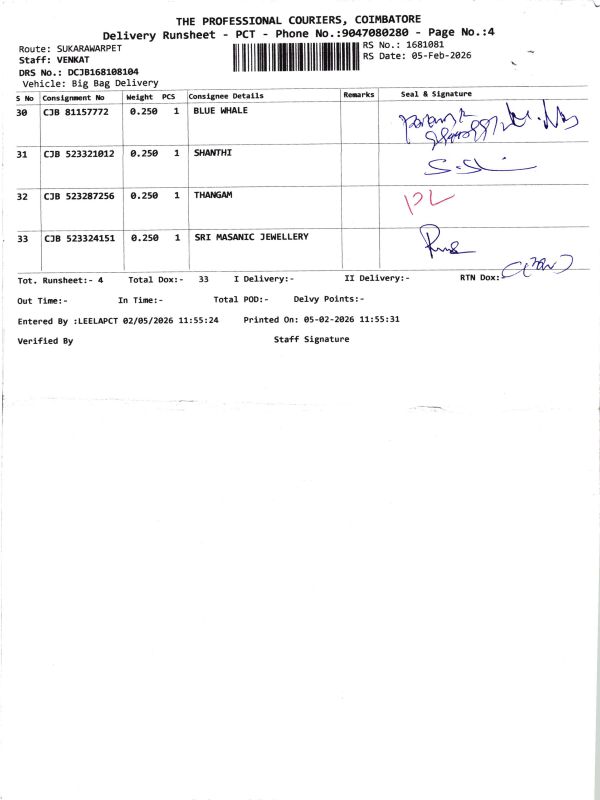 THE PROFESSIONAL COURIERS, COIMBATORE
Delivery Runsheet - PCT - Phone No.:9047080280 - Page No.:4
Route: SUKARAWARPET
RS No.: 1681081
Staff: VENKAT
RS Date: 05-Feb-2026
DRS No.: DCJB168108104
Vehicle: Big Bag Delivery
S No Consignment No Weight PCS Consignee Details Remarks Seal & Signature
30 CJB 81157772 0.250 1 BLUE WHALE
31 CJB 523321012 0.250 1 SHANTHI
32 CJB 523287256 0.250 1 THANGAM
33 CJB 523324151 0.250 1 SRI MASANIC JEWELLERY
Tot. Runsheet:- 4 Total Dox:- 33 I Delivery:- II Delivery:- RTN Dox:
Out Time:- In Time:- Total POD:- Delvy Points:-
Entered By :LEELAPCT 02/05/2026 11:55:24 Printed On: 05-02-2026 11:55:31
Verified By Staff Signature